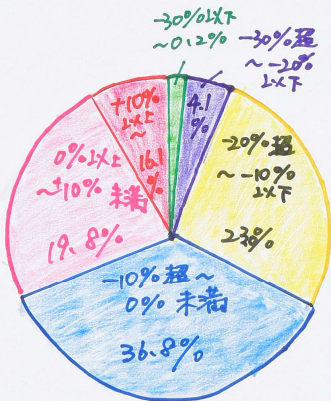 -30%以下
~0.2%
-30%超
~-20%
以下
4.1
%
-20%超
~-10%
以下
23%
-10%超~
0%未満
36.8%
0%以上
~+10%未満
19.8%
+10%
以上
~
16.1
%